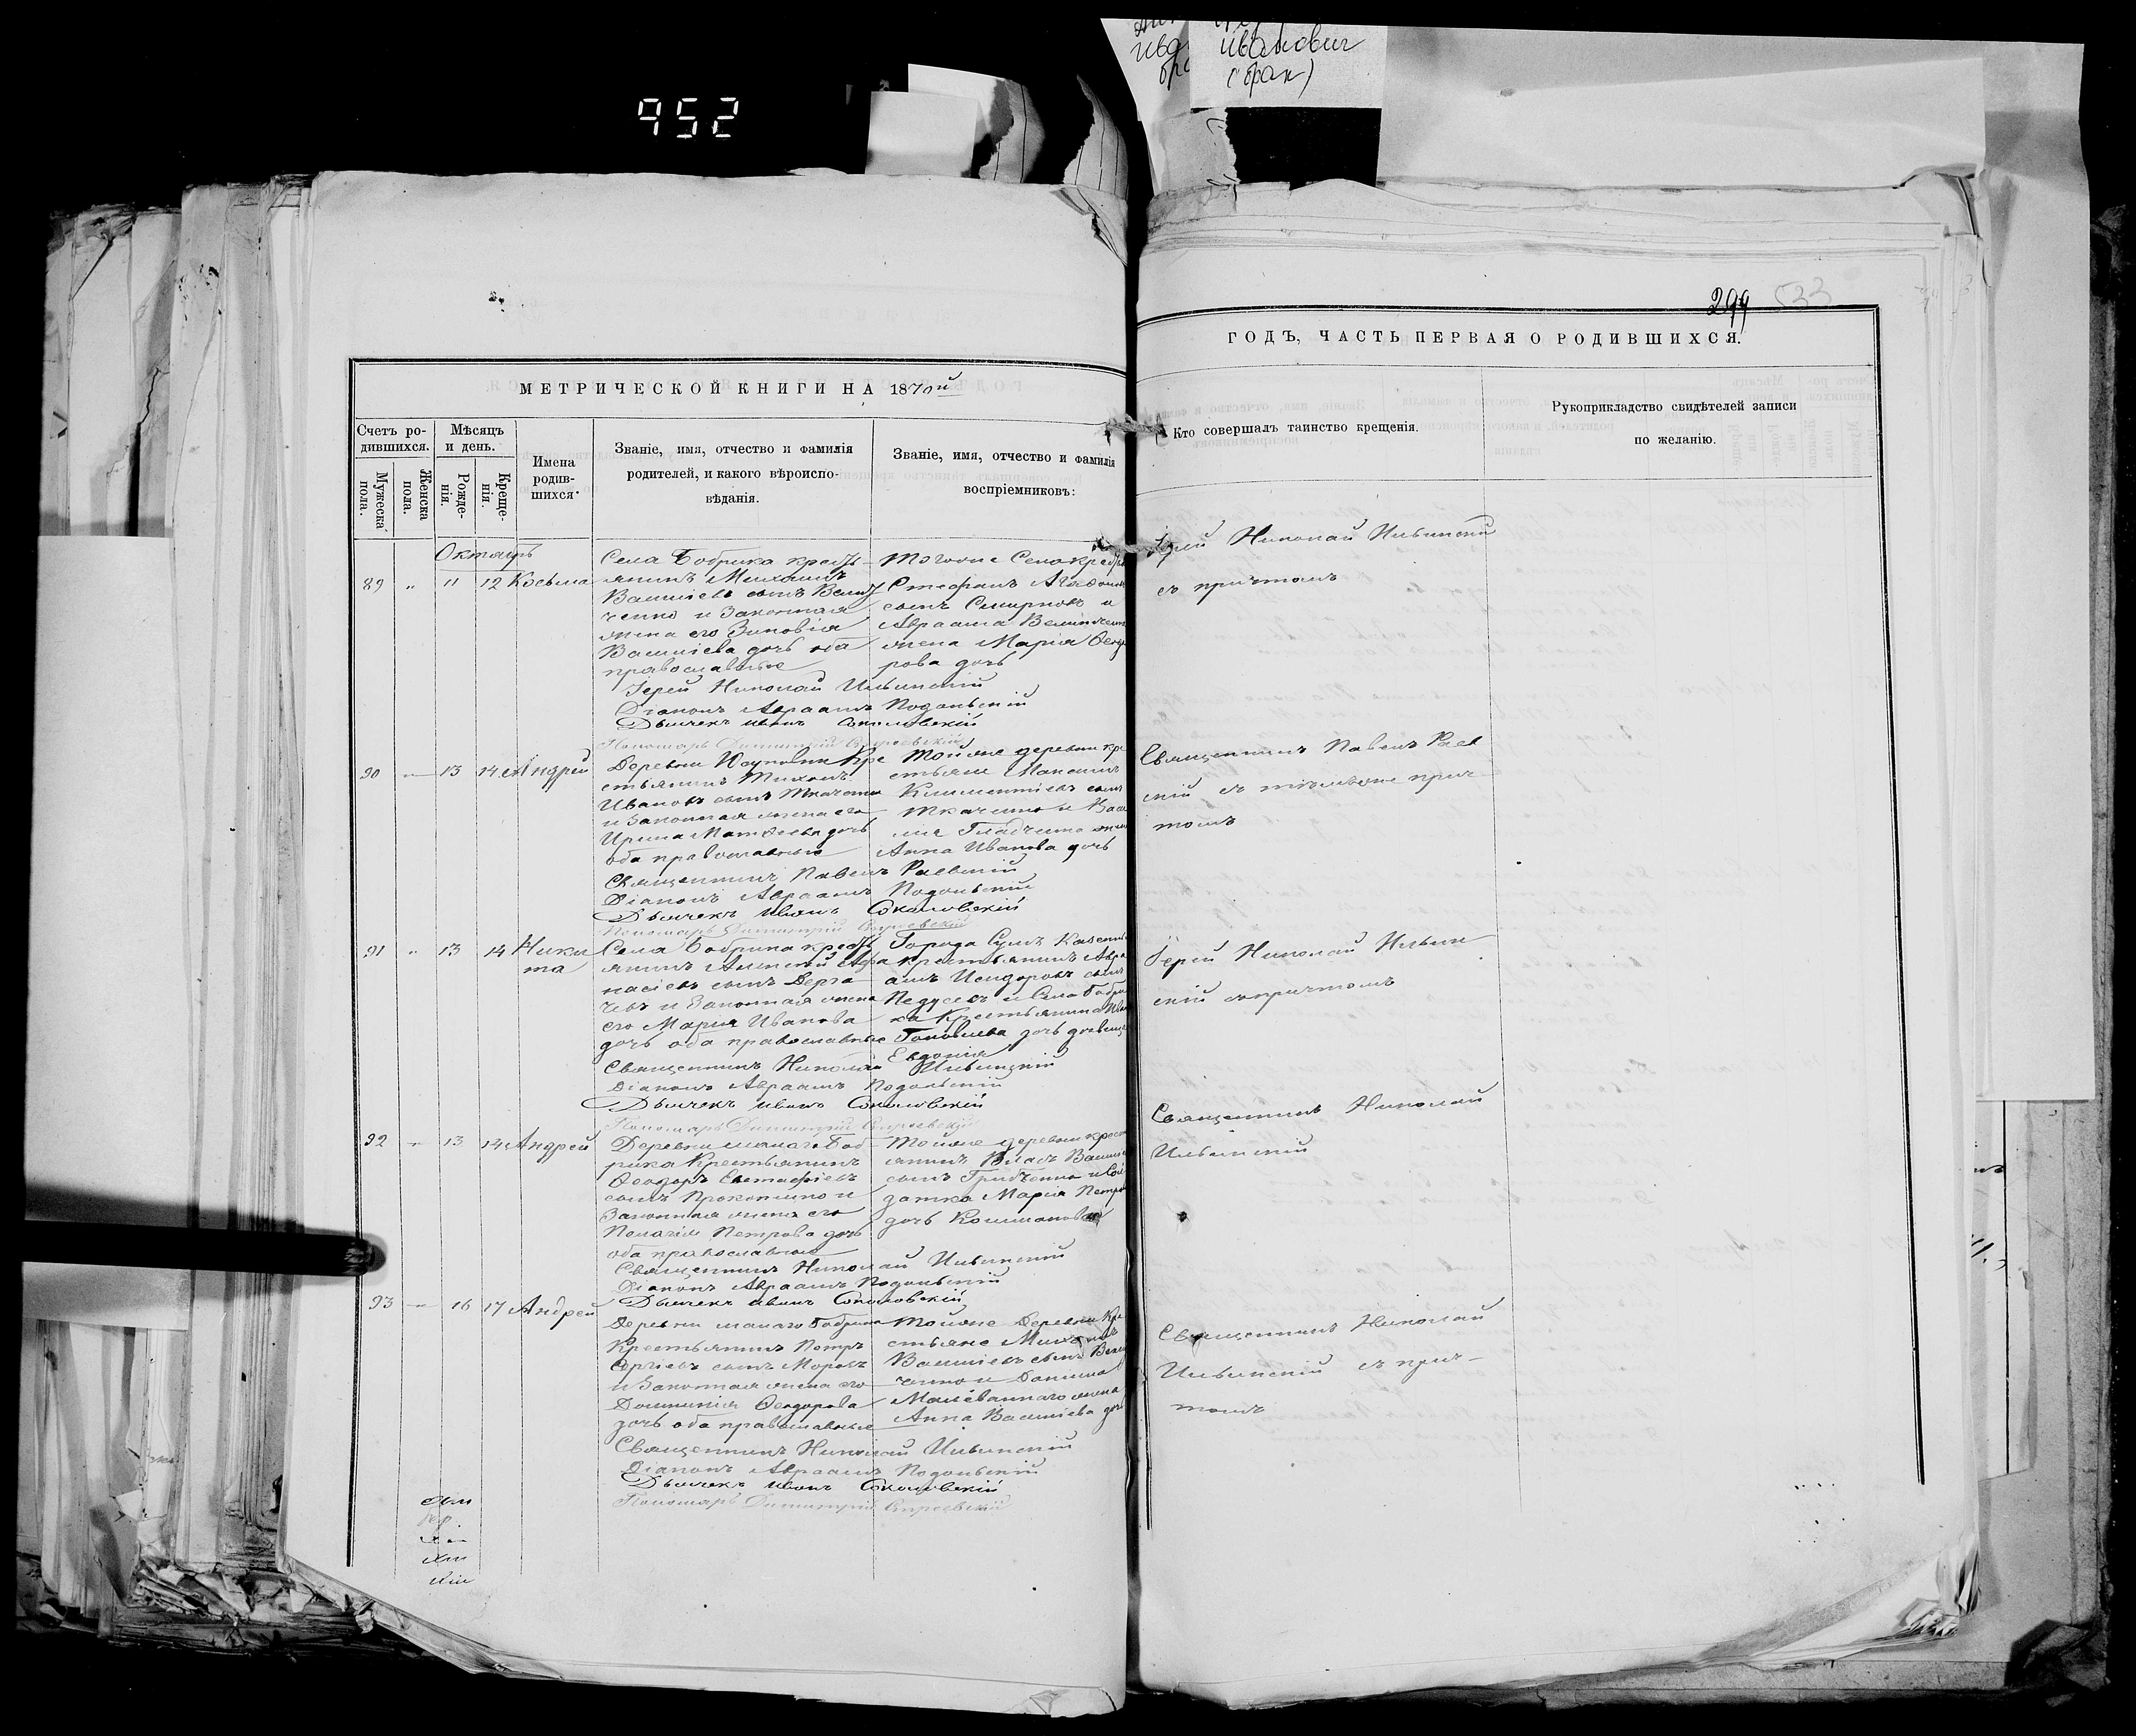 Иванович
(брак)
952
299
533
МЕТРИЧЕСКОЙ КНИГИ НА 1870й
ГОДЪ, ЧАСТЬ ПЕРВАЯ О РОДИВШИХСЯ.
Счетъ ро-
дившихся.
Мужеска
пола.
Женска
пола.
Мѣсяцъ
и день.
Рожде-
нія.
Креще-
нія.
Имена
родив-
шихся.
Званіе, имя, отчество и фамилія
родителей, и какого вѣроиспо-
вѣданія.
Званіе, имя, отчество и фамилія
воспріемниковъ:
Кто совершалъ таинство крещенія.
Рукоприкладство свидѣтелей записи
по желанію.
Октябрь
89 " 11 12 Косьма
Села Бобрика кресть-
янинъ Михаилъ
Василіевъ сынъ
ченко и Законная
жена его Зиновія
Василіева дочь оба
православные
Тогоже Села
Стефанъ
сынъ Смирновъ и
Авраама
жена Марія
рова дочь
Іерей Николай Ильинскій
съ причтомъ
Іерей Николай Ильинскій
Діаконъ Авраамъ Подольскій
Дьячекъ Иванъ Соколовскій
Пономарь Димитрій
90 " 13 14 Андрей
Деревни Кре
стьянинъ Тихонъ
Ивановъ сынъ Ткаченко
и Законная жена его
Ирина Матѳеева дочь
оба православные
Тойже деревни кре
стьяне Максимъ
Климентіевъ сынъ
Ткаченко и Васи
лія Гладченко жена
Анна Иванова дочь
Священникъ Павелъ Раев
скій съ тѣмъже прич
томъ
Священникъ Павелъ Раевскій
Діаконъ Авраамъ Подольскій
Дьячекъ Иванъ Соколовскій
Пономарь Димитрій
91 " 13 14 Ники
та
Села Бобрика кресть
янинъ Алексѣй Аѳа
насіевъ сынъ Дерга
чевъ и Законная жена
его Марія Иванова
дочь оба православные
Города Сумъ
крестьянинъ Авра
амъ Исидоровъ сынъ
и Села Бобри
ка Крестьянина
дочь
Евдокія
Іерей Николай Ильин
скій съ причтомъ
Священникъ Николай Ильинскій
Діаконъ Авраамъ Подольскій
Дьячекъ Иванъ Соколовскій
Пономарь Димитрій
92 " 13 14 Андрей
Деревни малаго Боб-
рика Крестьянинъ
Ѳеодоръ Евстафіевъ
сынъ Прокопенко и
Законная жена его
Пелагія Петрова дочь
оба православные
Тойже деревни крест
янинъ Власъ
сынъ Гриденко и Сол
датка Марія Петро
дочь
Священникъ Николай
Ильинскій
Священникъ Николай Ильинскій
Діаконъ Авраамъ Подольскій
Дьячекъ Иванъ Соколовскій
93 " 16 17 Андрей
Деревни малаго Бобрика
Крестьянинъ Петръ
Сергіевъ сынъ Моровъ
и Законная жена его
Домникія Ѳеодорова
дочь оба православные
Тойже Деревни Кре
стьяне Михаилъ
Василіевъ сынъ
ченко и Даніила
Малеваннаго жена
Анна Василіева дочь
Священникъ Николай
Ильинскій съ прич-
томъ
Священникъ Николай Ильинскій
Діаконъ Авраамъ Подольскій
Дьячекъ Иванъ Соколовскій
Пономарь Димитрій